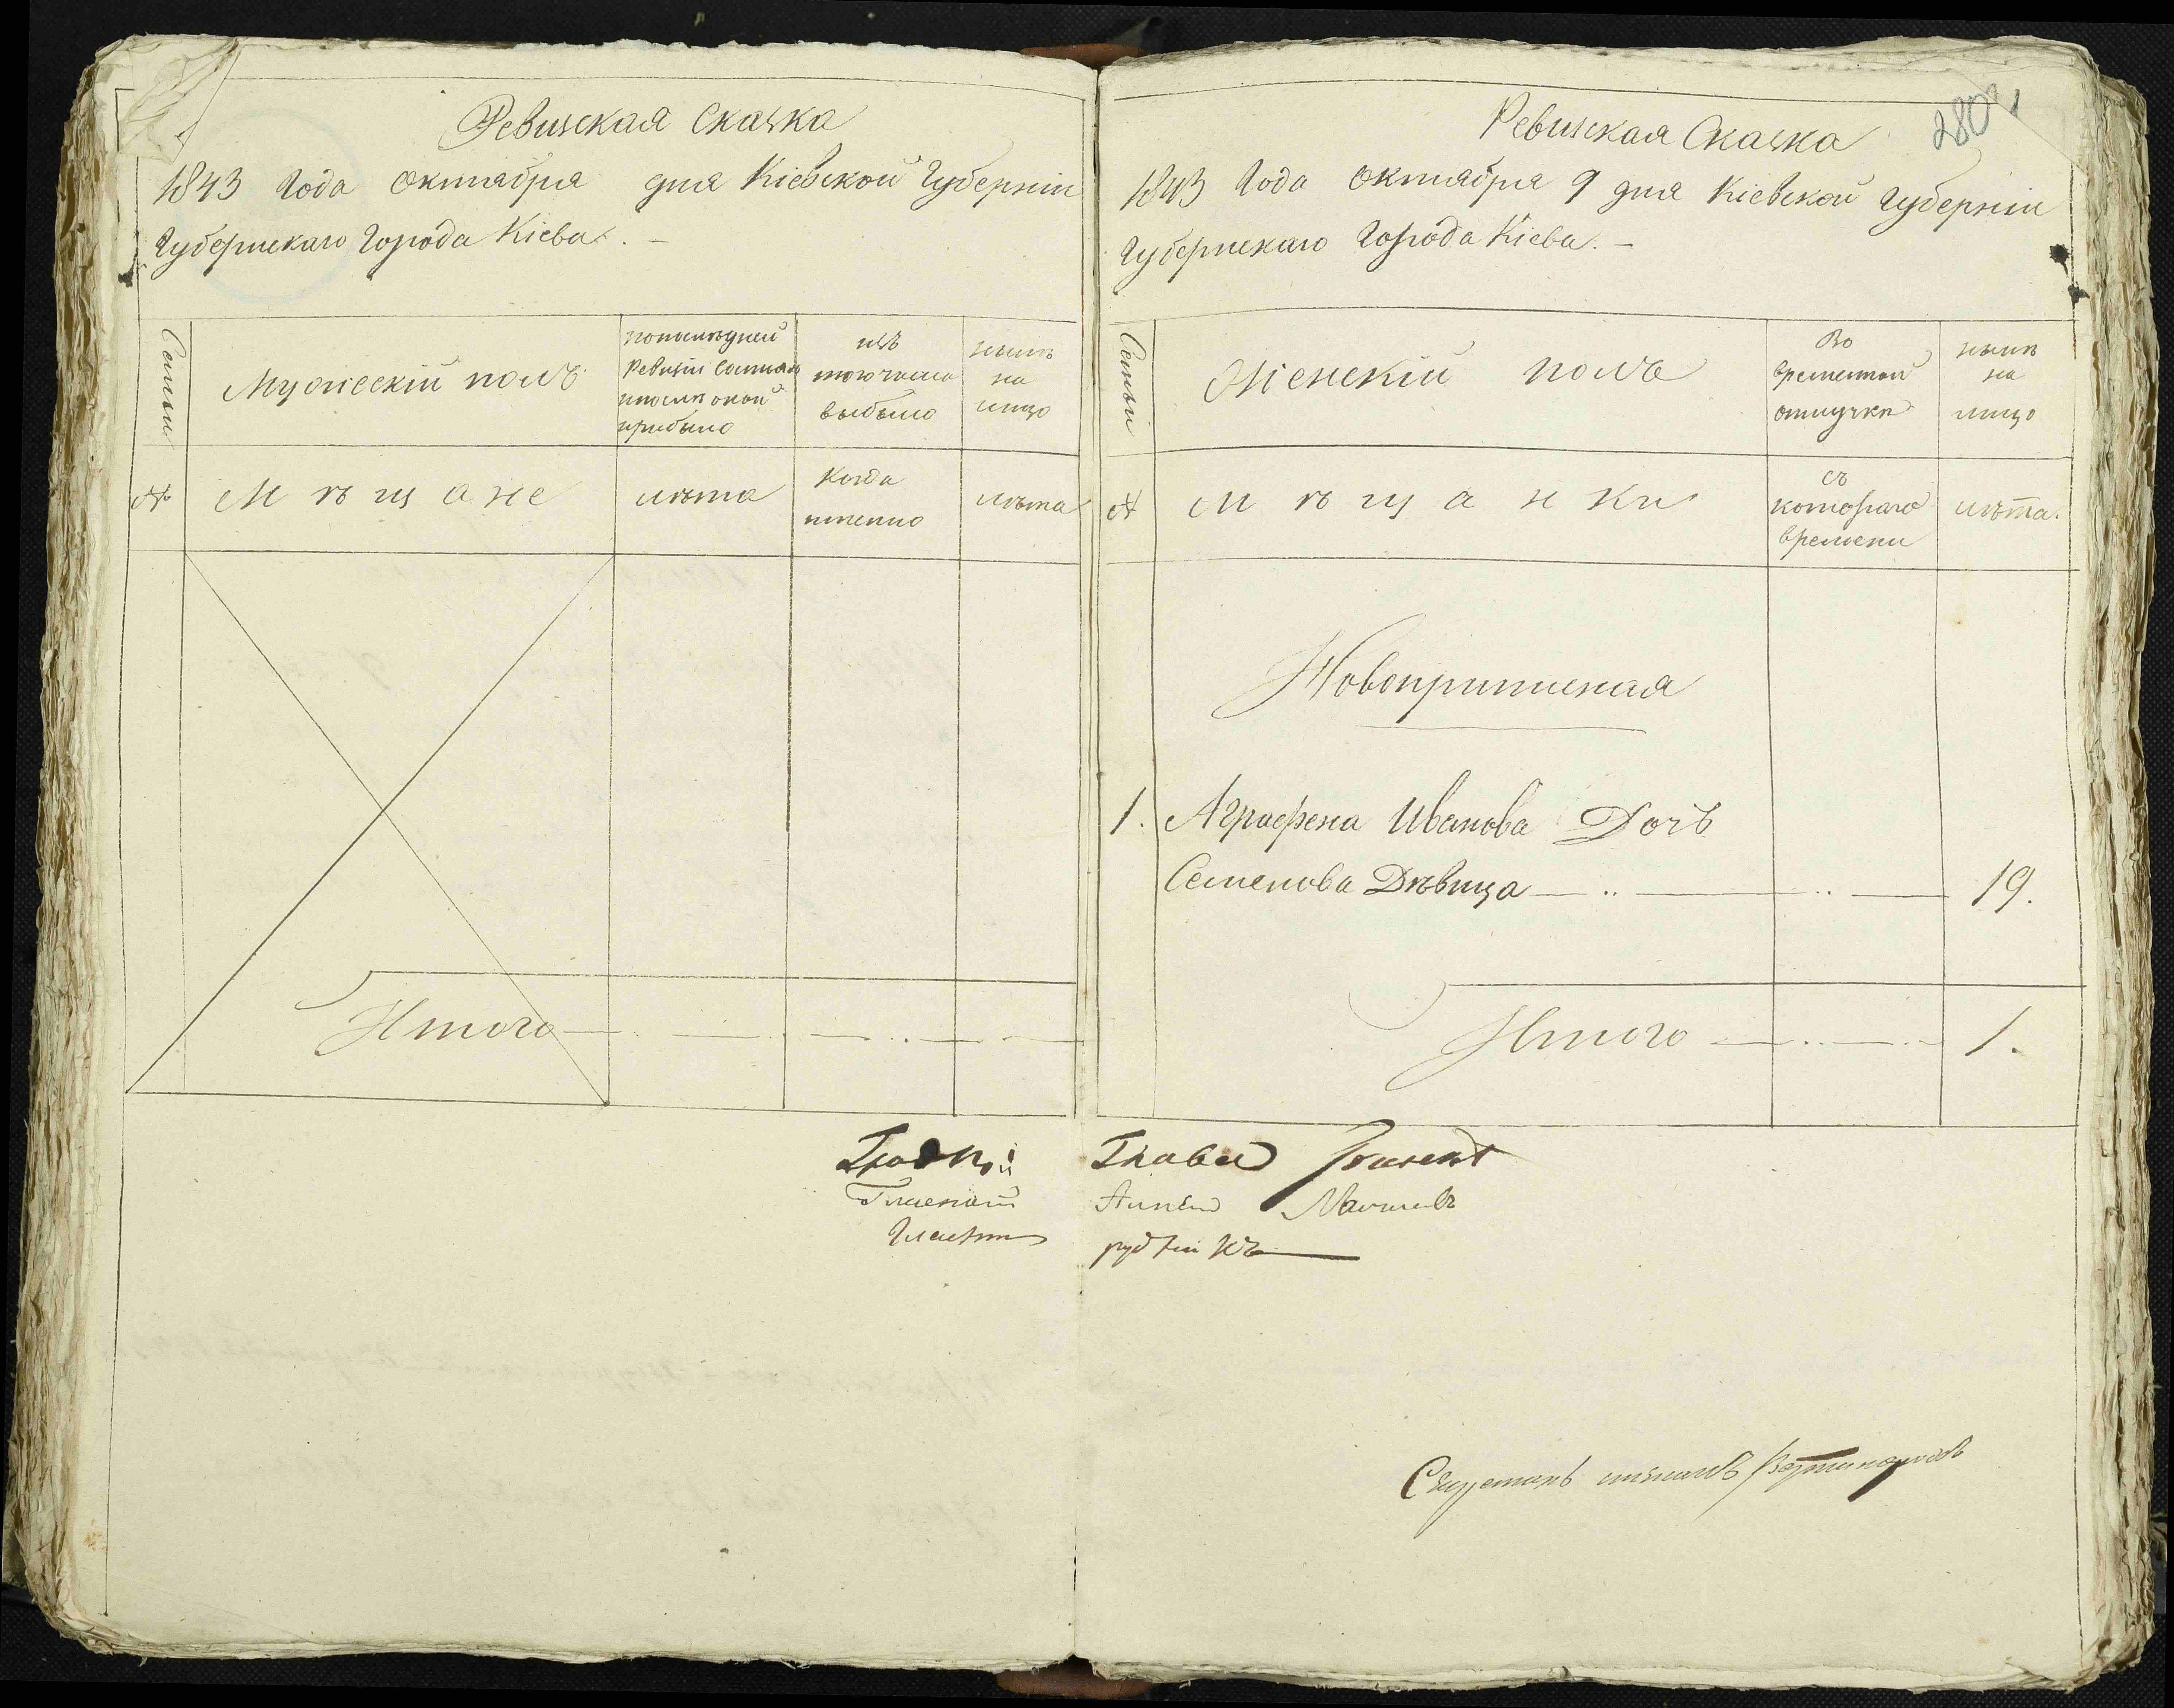 Ревизская Сказка
1843 Года Октября дня Кіевской Губерніи
Губернскаго Города Кіева. –
Семьи
Мужескій полъ
попослѣдней
Ревизіи состояло
ипослѣ оной
прибыло
изъ
того числа
выбыло
нынѣ
на
лицо
№
Мѣщане
лѣта
Когда
именно
лѣта
Итого
280
Ревизская Сказка
1843 Года Октября 9 дня Кіевской Губерніи
Губернскаго Города Кіева. –
Семьи
Женскій полъ
Во
временной
отлучкѣ
нынѣ
на
лицо
№
Мѣщанки
съ
котораго
времени
лѣта.
Новоприписная
1. Аграфена Иванова Дочь
Семенова Дѣвица 19.
Итого 1.
Градской Глава
Гласный
Гласный